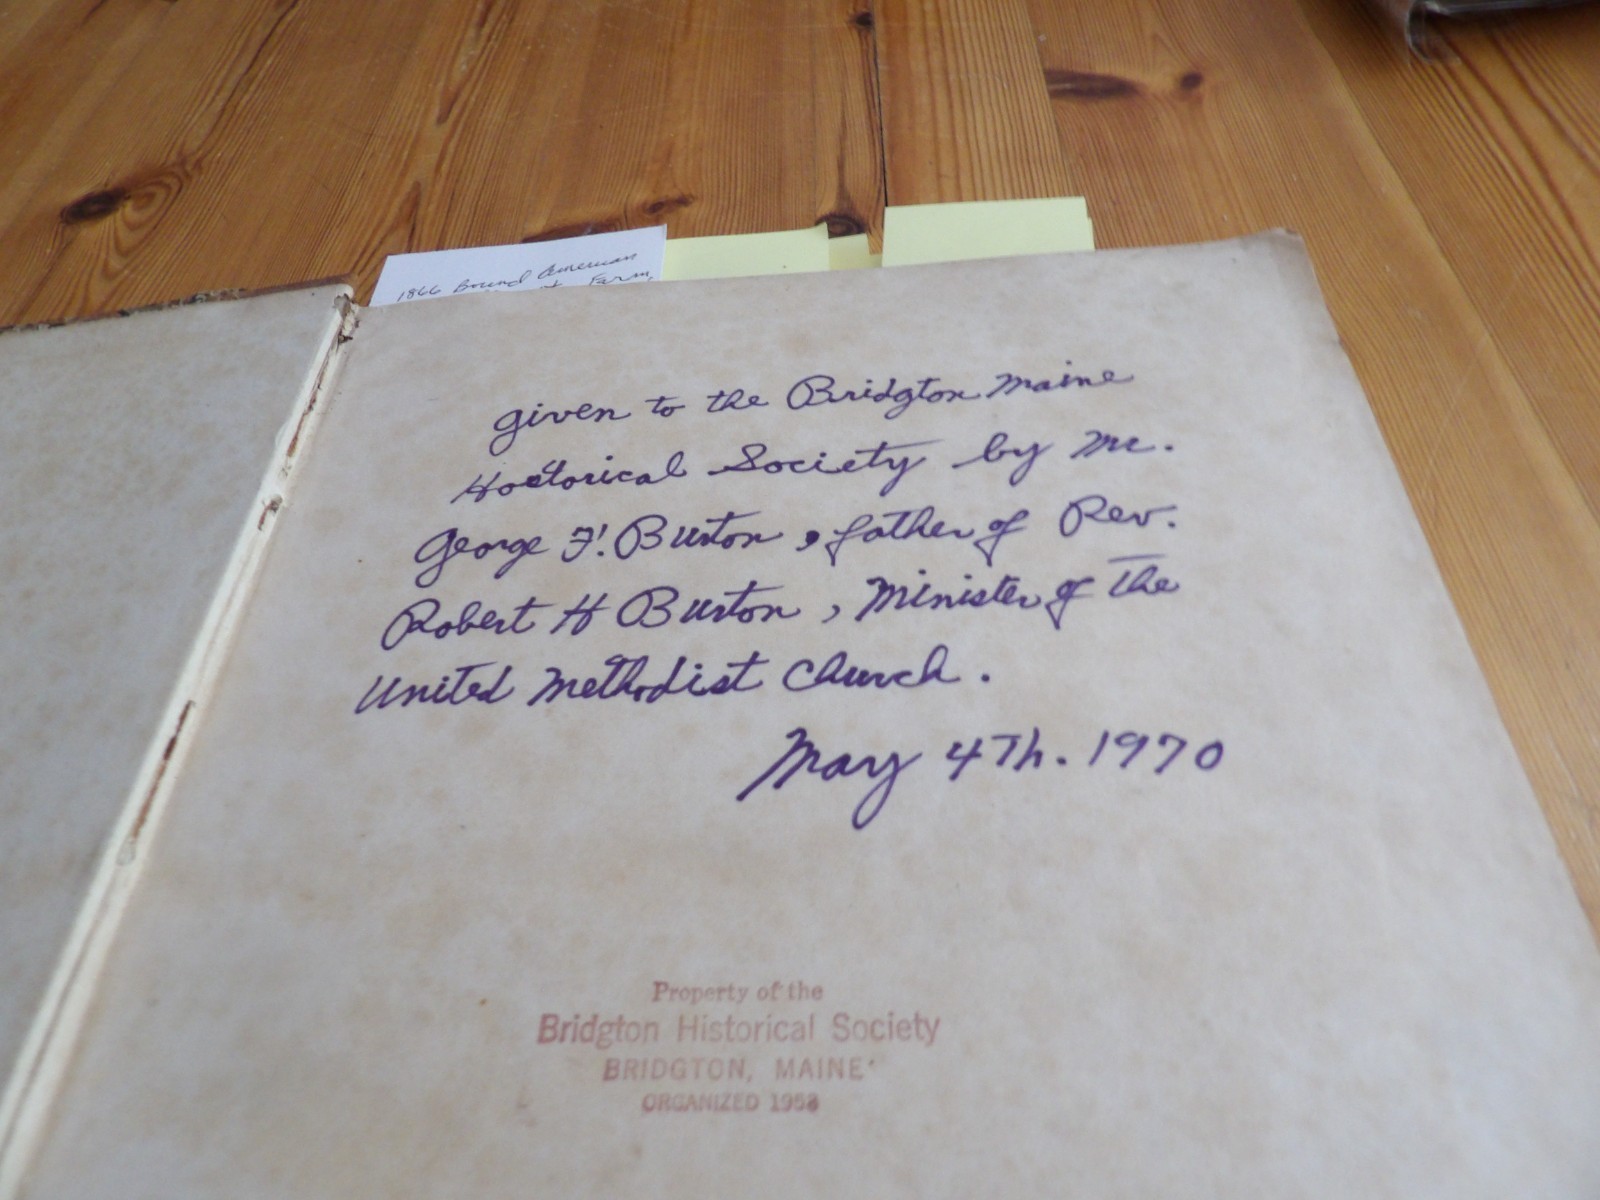 1866 Bound American
Farm,
given to the Bridgton Maine
Hostorical Society by Mr.
George F. Burton, father of Rev.
Robert H Burton, Minister of The
United Methodist Church.
May 4Th. 1970
Property of the
Bridgton Historical Society
BRIDGTON, MAINE
ORGANIZED